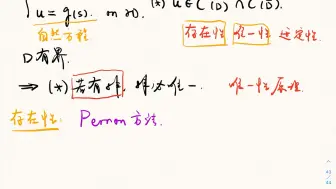 u = g(s). on ∂D. (*) u ∈ C²(D) ∩ C(D̄).
自然方程 存在性 唯一性 稳定性
D有界.
⇒ (*) 若有解, 解必唯一. 唯一性原理
存在性: Perron 方法.